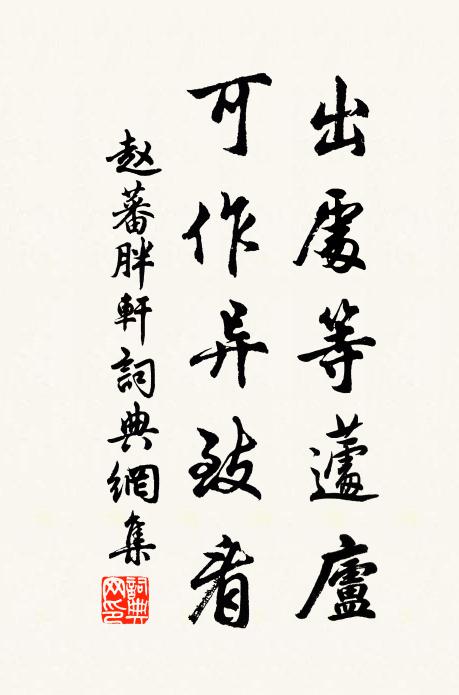 出處等蘧廬
可作异致看
赵蕃胖軒詞典網集
詞典网印